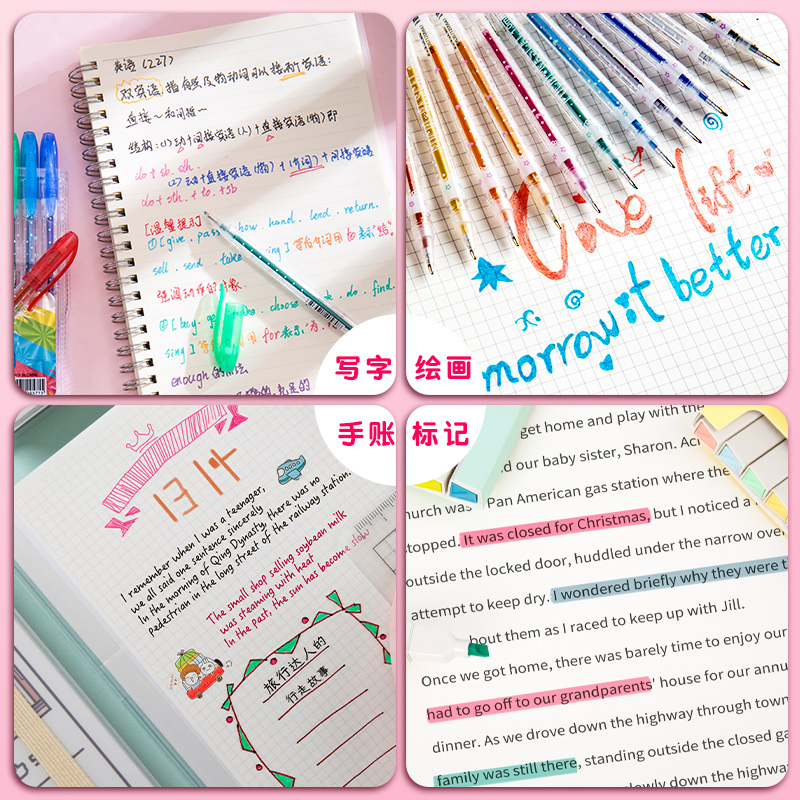 英语(227)
双宾语 指有些及物动词可以接两个宾语:
直接~和间接~
结构:(1)动+间接宾语(人)+直接宾语(物)即
do + sb. sth.
(2)动+直接宾语(物)+(介词)+间接宾语
do + sth. + to. + sb
[温馨提示]
①[give. pass. how. hand. lend. return.
sell. send. take ing]等后介词用to表示"给".
强调动作的对象
②[buy. make. choose. do. find.
sing] for表示"为.
enough的用法
写字
绘画
Love list
morrow it better
手账
标记
1314
I remember when I was a teenager,
we all said one sentence sincerely
In the morning of Qing Dynasty, there was no
pedestrian in the long street of the railway station.
The small shop selling soybean milk
was steaming with heat
In the past, the sun has become slow
旅行达人的
行走故事
get home and play with the
d our baby sister, Sharon.
hurch was Pan American gas station where the
topped. It was closed for Christmas, but I noticed a
outside the locked door, huddled under the narrow over
attempt to keep dry. I wondered briefly why they were t
bout them as I raced to keep up with Jill.
Once we got home, there was barely time to enjoy our
had to go off to our grandparents' house for our annu
dinner. As we drove down the highway through town
family was still there, standing outside the closed ga
slowly down the highway